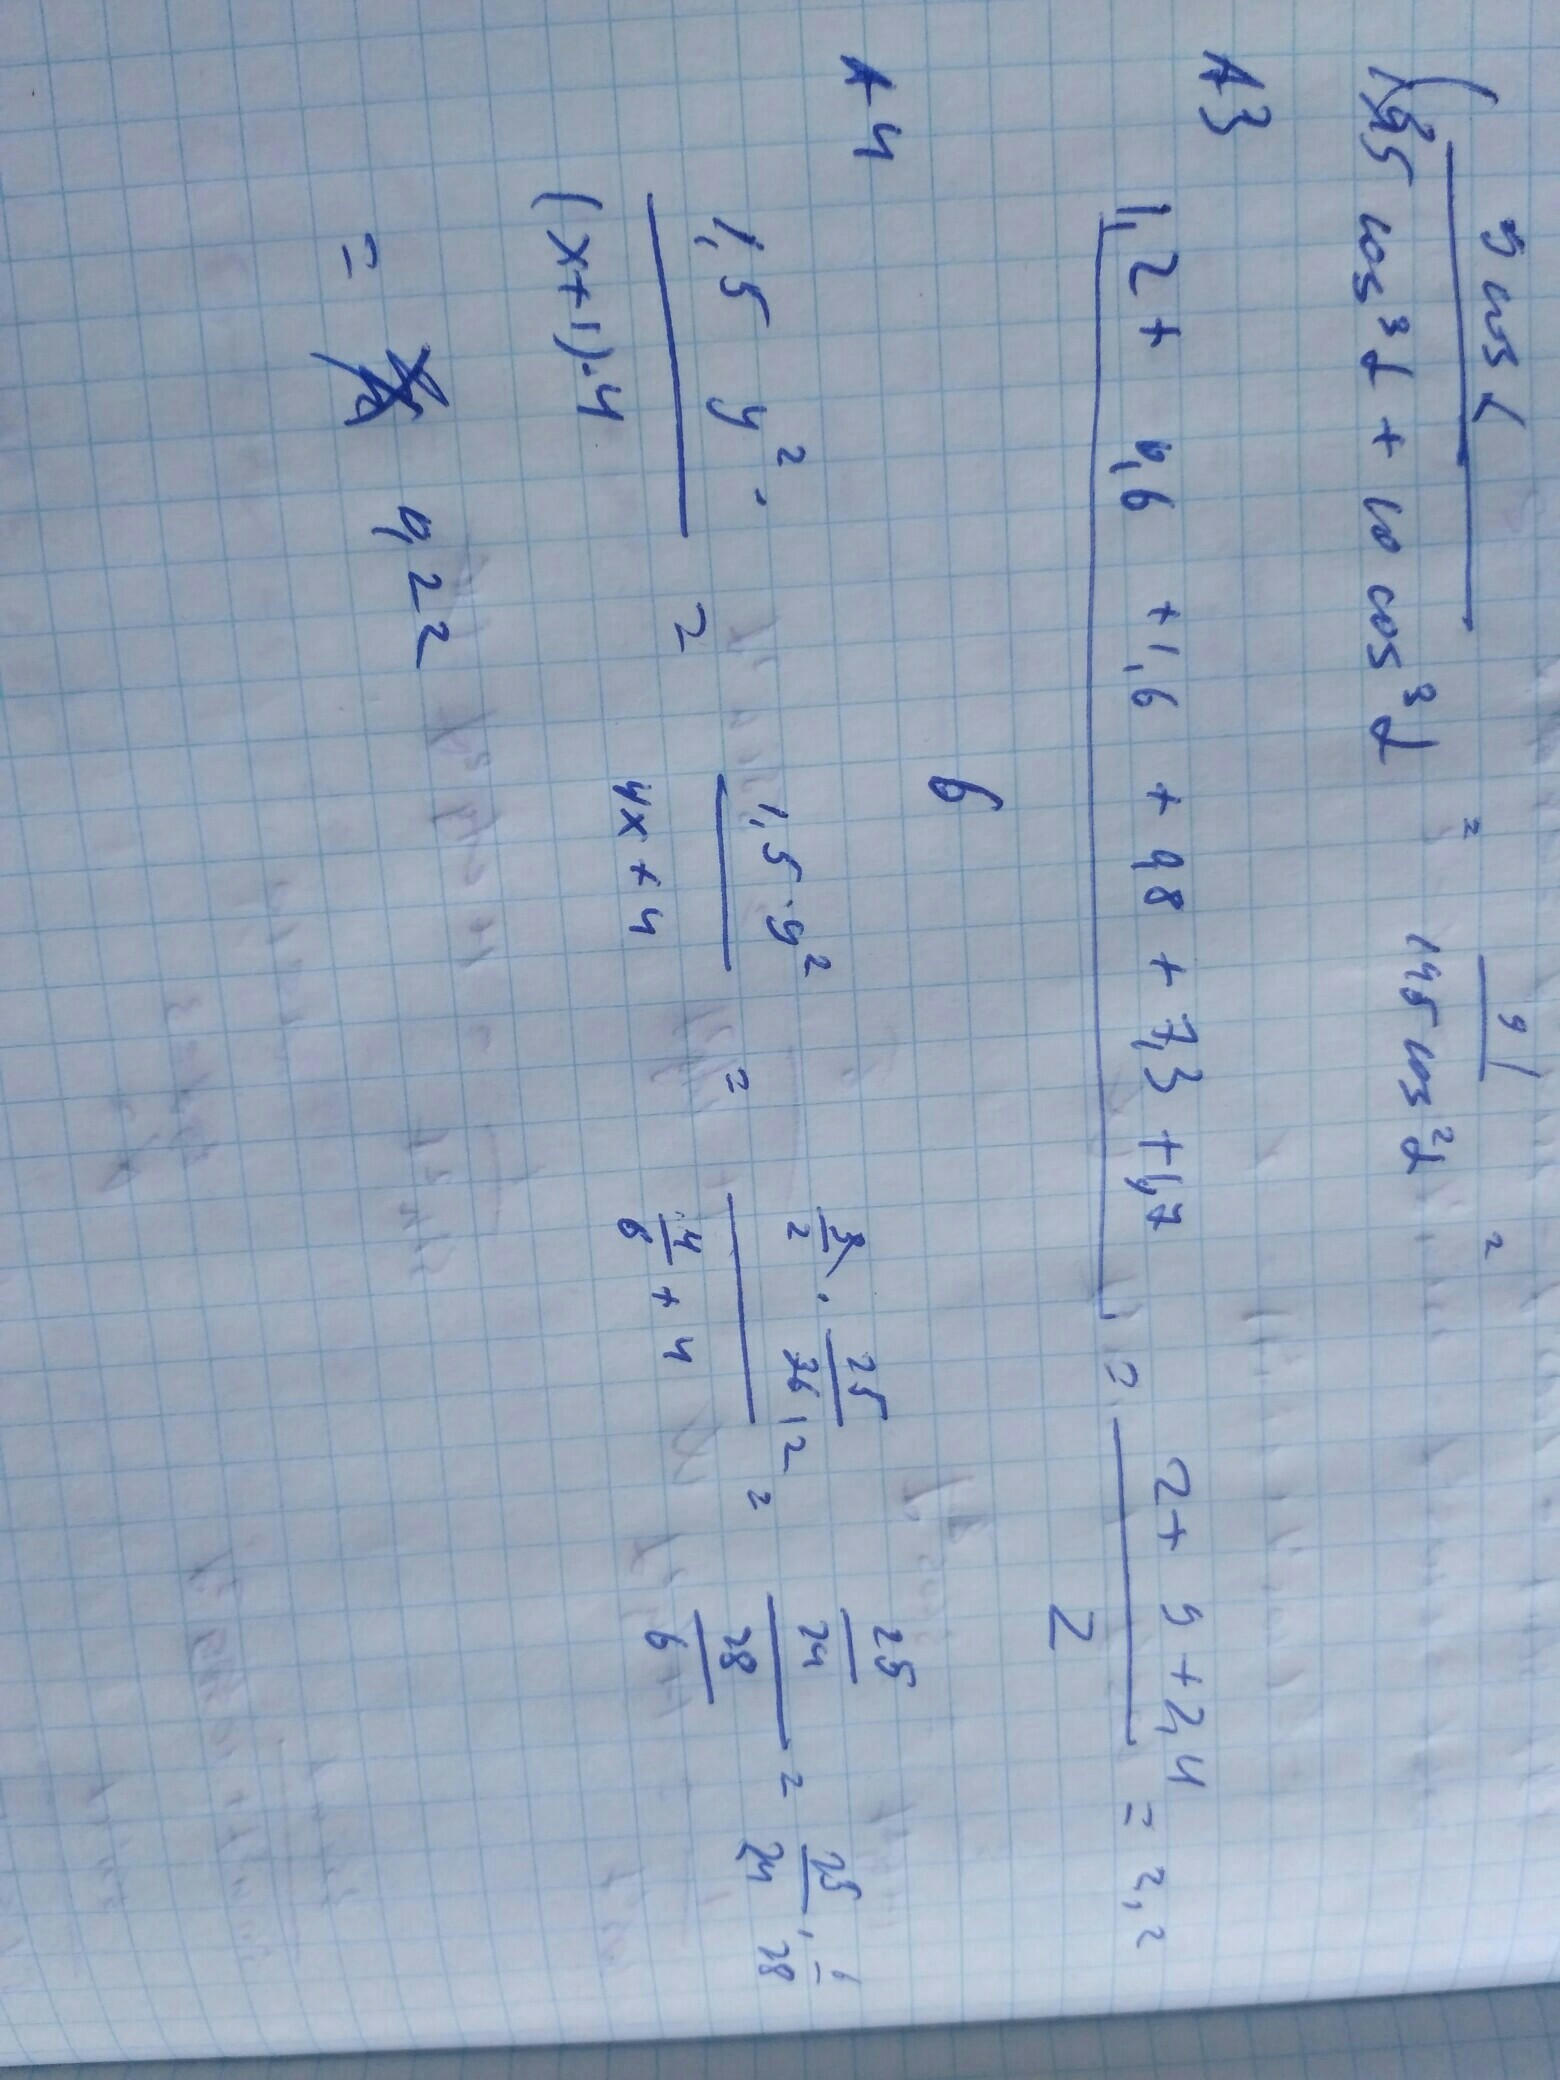 9 cos L
135 cos³L + 10 cos³L = 9 / 145 cos²L =
A3
1,2 + 0,6 + 1,6 + 0,8 + 7,3 + 1,7 / 6 = 2 + 9 + 2,4 / 2 = 2,2
A4
1,5 y² . / (x+1).4 = 1,5.y² / 4x+4 = 3/2 . 25/36 12 / 4/6 + 4 = 25/24 / 28/6 = 25/24 . 6/28
= 0,22